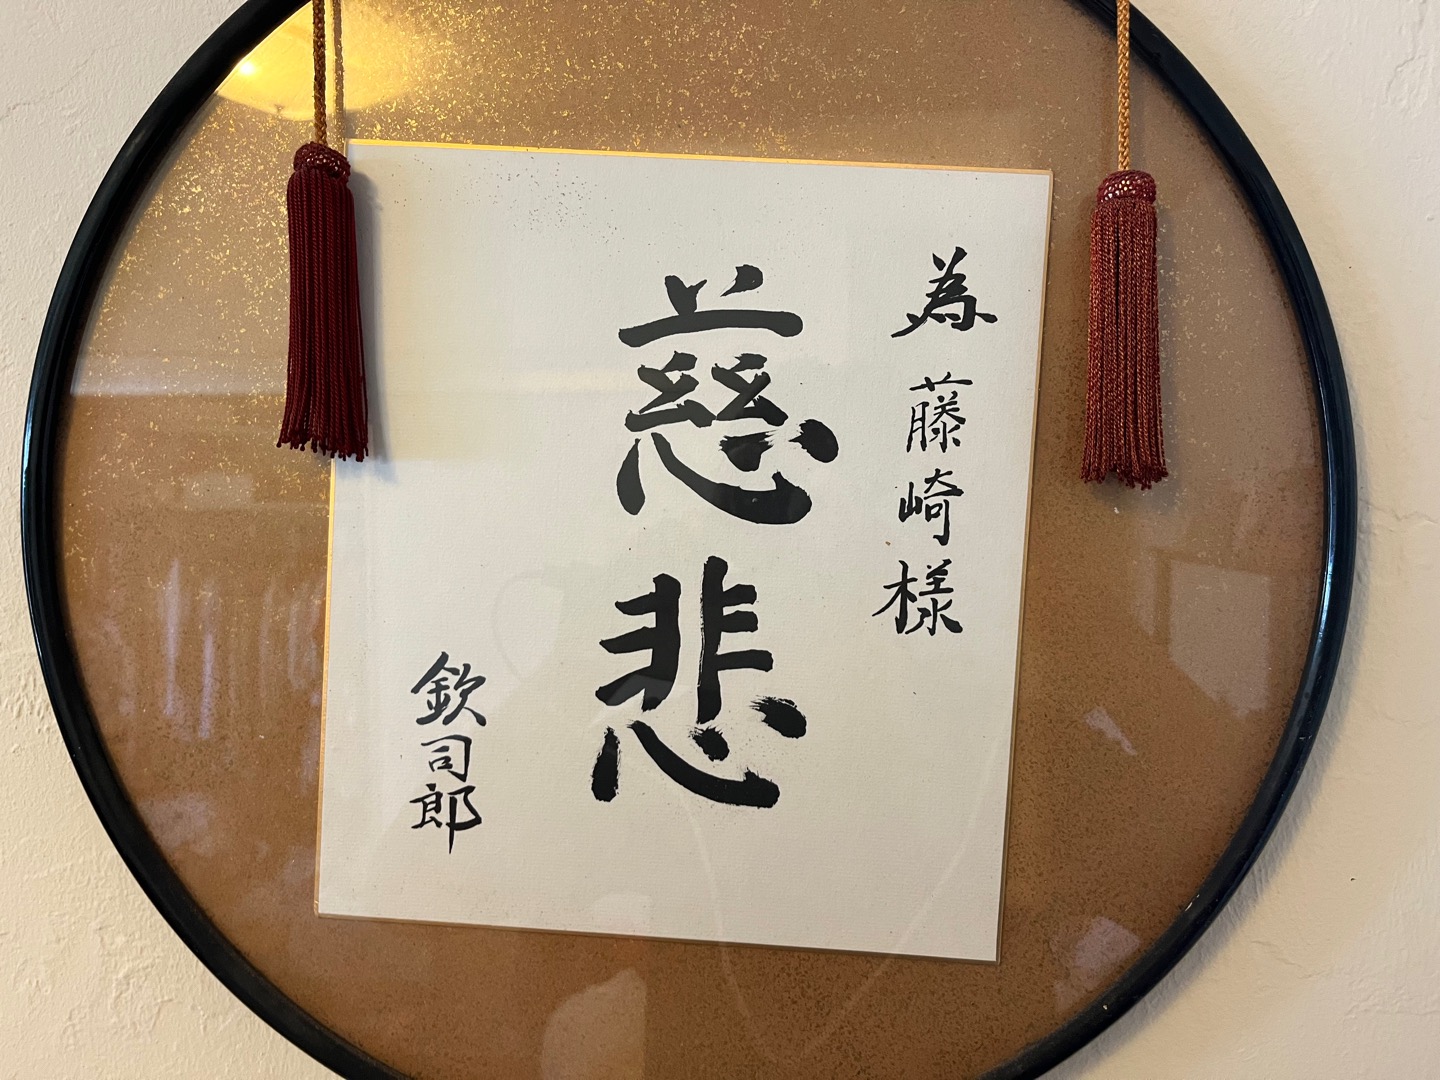 為藤崎様
慈悲
欽司郎